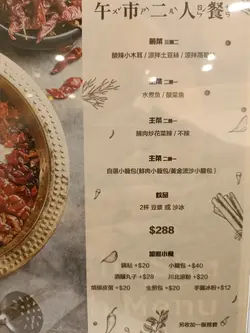 午市二人餐
前菜 三選二
酸辣小木耳 / 涼拌土豆絲 / 涼拌
主菜 二選一
水煮魚 / 酸菜魚
主菜 二選一
臘肉炒花菜辣 / 不辣
主食 二選一
自選小籠包(鮮肉小籠包/黃金流沙小籠包)
飲品
2杯 豆漿 或 沙冰
$288
加配小食
鍋貼 +$20
小籠包 +$40
酒釀丸子 +$29
川北涼粉 +$20
燒椒皮蛋 +$20
生煎包 +$20
手工冰粉 +$12
另收加一服務費